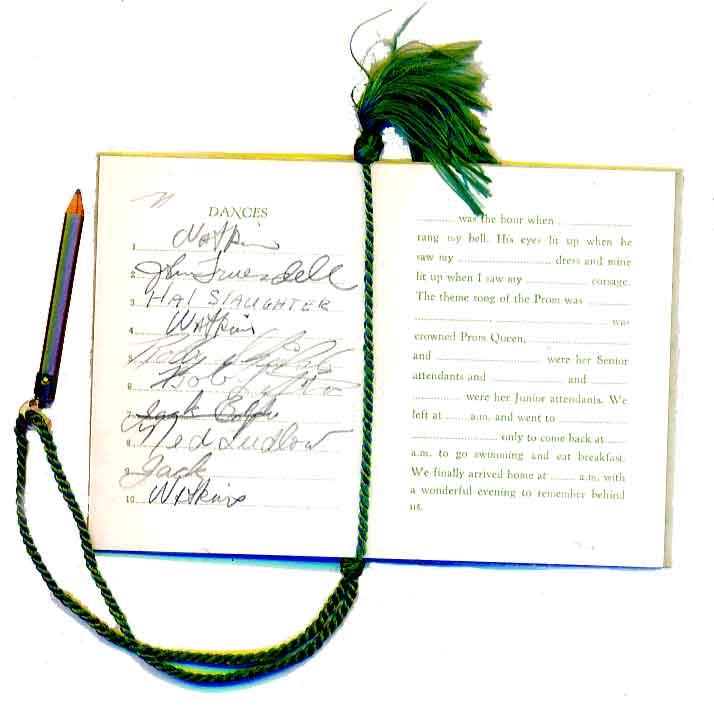 DANCES
1. Watkins
2. John Truesdell
3. HAL SLAUGHTER
4. Watkins
5.
6. Bob
7. Jack
8. Ned Ludlow
9. Jack
10. Watkins
............ was the hour when ....................
rang my bell. His eyes lit up when he
saw my .................................. dress and mine
lit up when I saw my .................. corsage.
The theme song of the Prom was ............
.......................................................... was
crowned Prom Queen, ............................
and .............................. were her Senior
attendants and ...................... and ..........
.............. were her Junior attendants. We
left at ....... a.m. and went to ..................
............................. only to come back at .....
a.m. to go swimming and eat breakfast.
We finally arrived home at ........ a.m. with
a wonderful evening to remember behind
us.